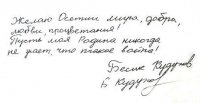 Желаю Осетии мира, добра,
любви, процветания!
Пусть моя Родина никогда
не знает, что такое война!
Бесик Кудухов
Б Кудухов